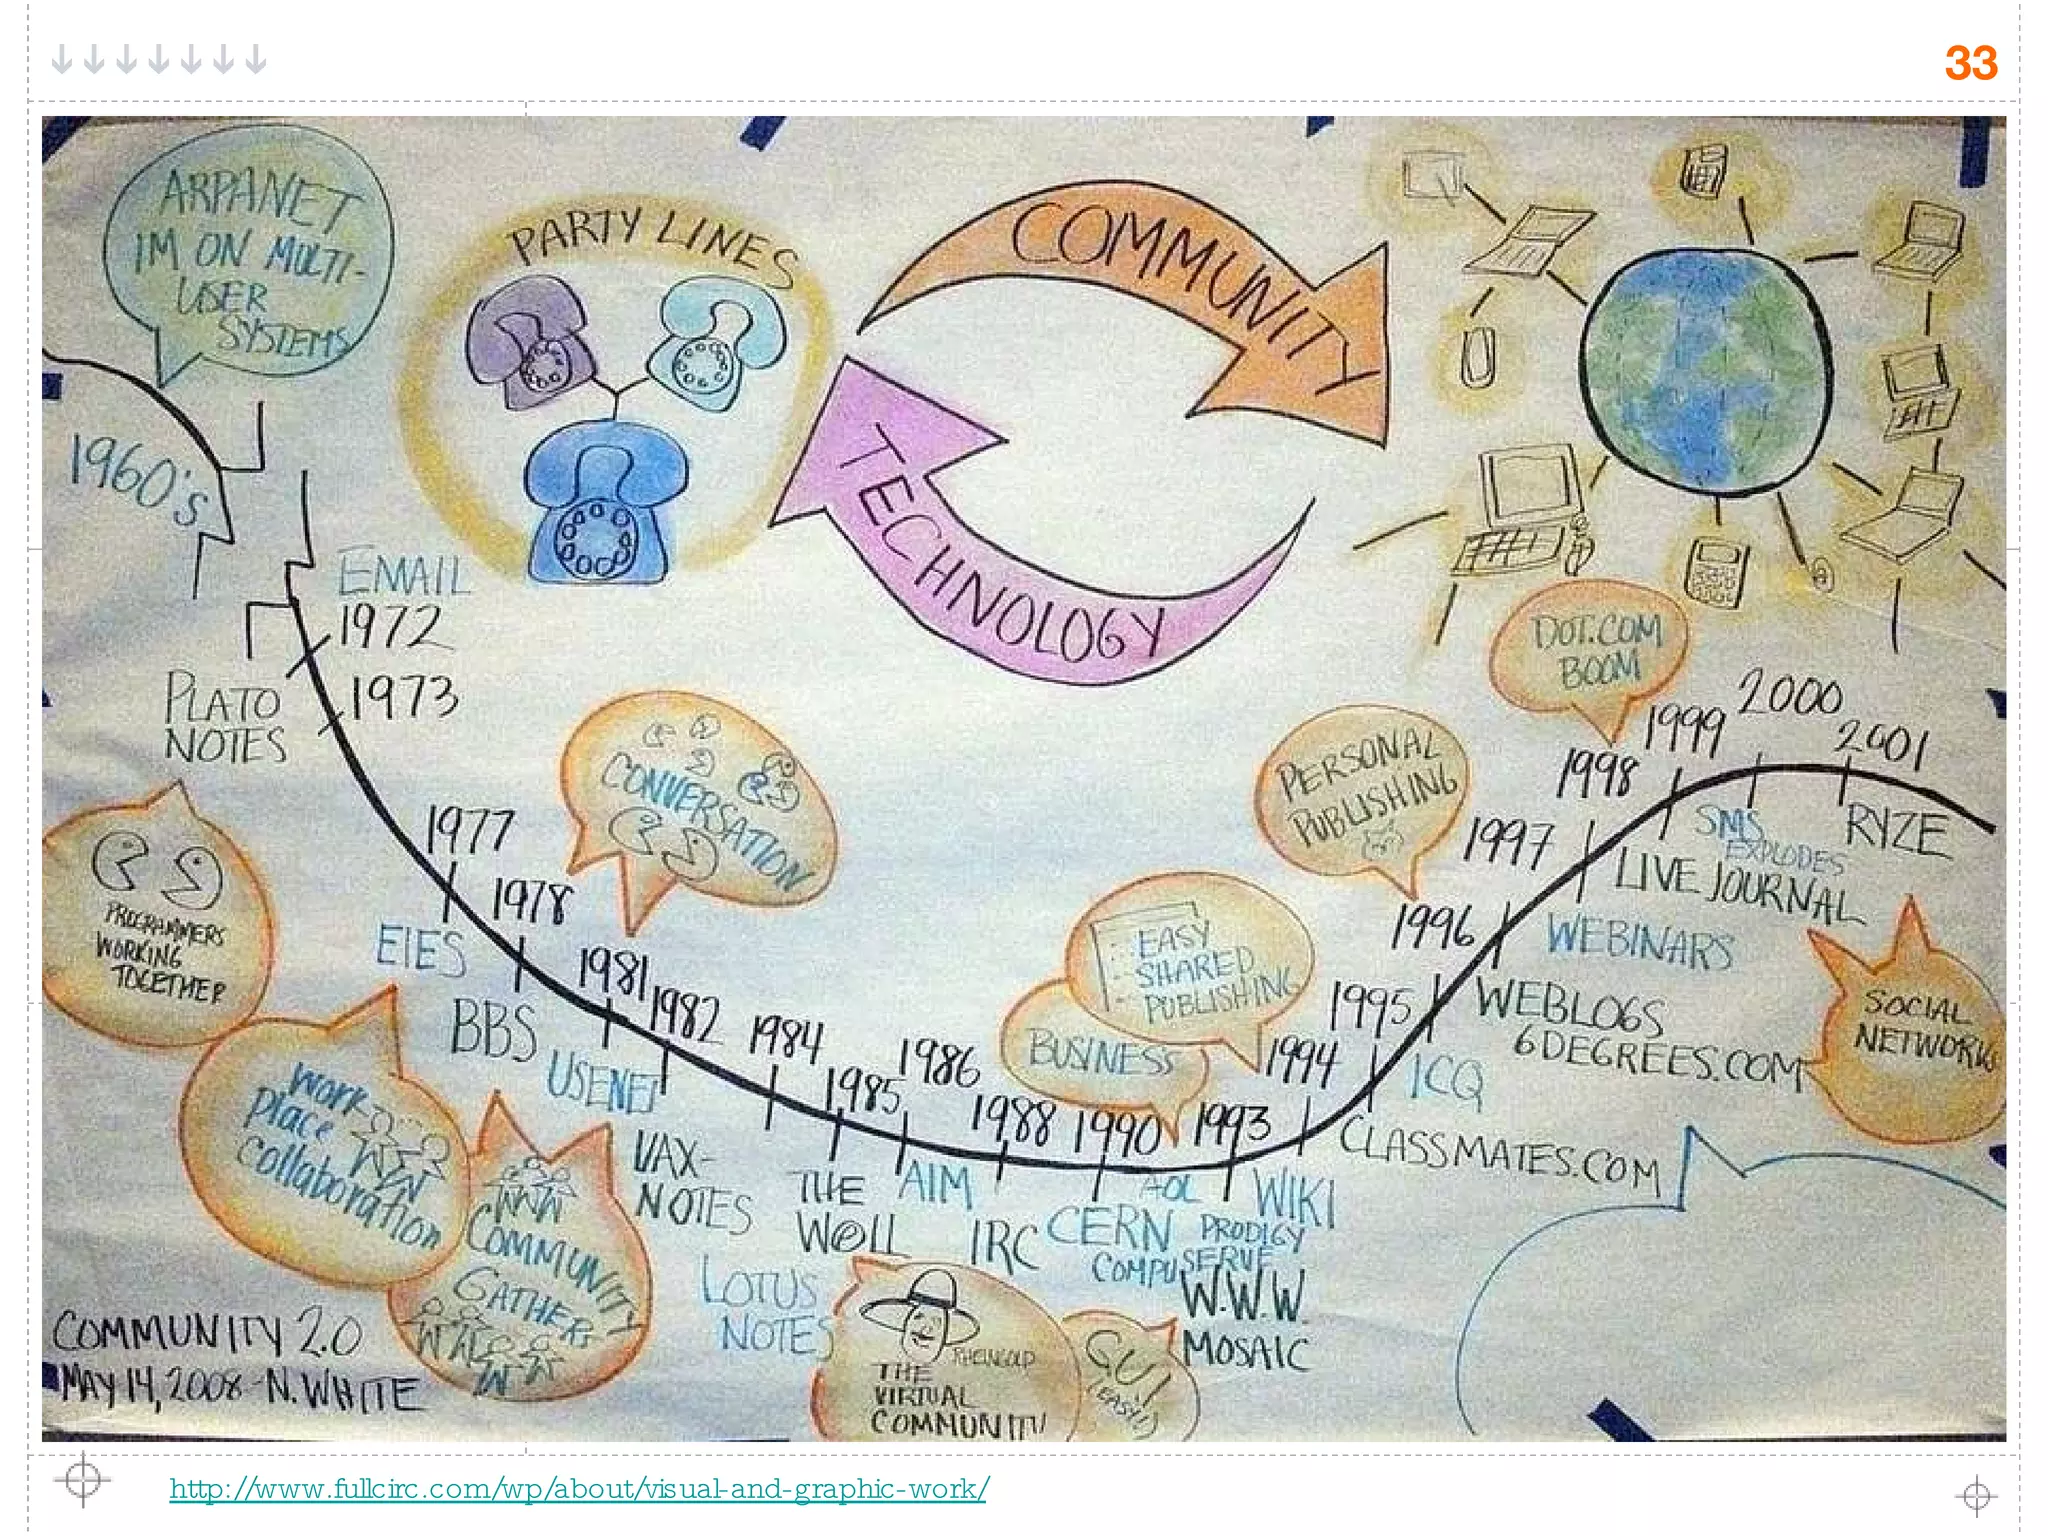 33
ARPANET
IM ON MULTI-
USER
SYSTEMS
PARTY LINES
COMMUNITY
TECHNOLOGY
1960's
EMAIL
1972
1973
PLATO
NOTES
1977
EIES
1978
BBS
CONVERSATION
PROGRAMMERS
WORKING
TOGETHER
Work-
place
collaboration
COMMUNITY
GATHERS
1981
USENET
1982
VAX-
NOTES
1984
LOTUS
NOTES
1985
THE
W@LL
1986
AIM
1988
IRC
1990
CERN
AOL
PRODIGY
COMPUSERVE
1993
W.W.W.
MOSAIC
WIKI
BUSINESS
EASY
SHARED
PUBLISHING
1994
CLASSMATES.COM
1995
ICQ
1996
WEBLOGS
6DEGREES.COM
PERSONAL
PUBLISHING
1997
WEBINARS
1998
LIVE JOURNAL
DOT.COM
BOOM
1999
SMS
EXPLODES
2000
2001
RYZE
SOCIAL
NETWORKS
RHEINGOLD
THE
VIRTUAL
COMMUNITY
GUI
(EASY!)
COMMUNITY 2.0
MAY 14, 2008 - N. WHITE
http://www.fullcirc.com/wp/about/visual-and-graphic-work/